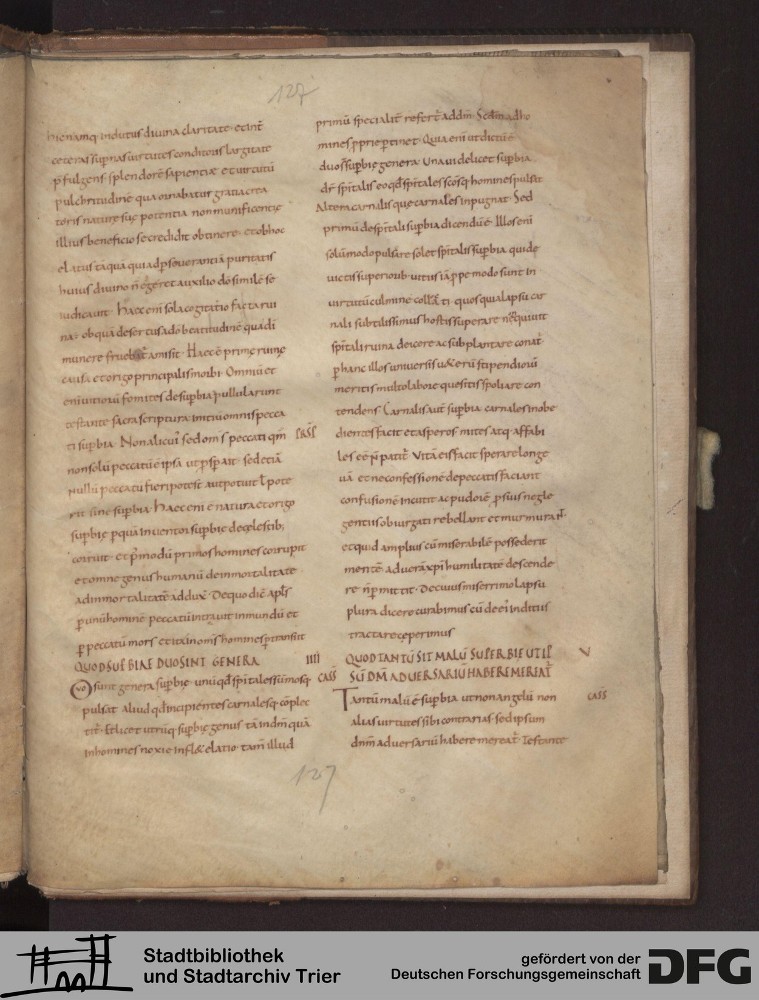 127
hicnamq; indutus divina claritate et int
ceteras supnas virtutes conditoris largitate
pfulgens splendorē sapientiae et virtutū
pulchritudinē qua ornabatur gratia crea
toris naturę suę potentia non munificentię
illius beneficio se credidit obtinere et ob hoc
elatus tāquā qui ad pseverantiā puritatis
huius divino n̄ egeret auxilio dō similē se
iudicavit Haec eni sola cogitatio facta rui
na ob quā desertus a dō beatitudinē quā di
munere fruebat amisit Haec ē primę ruinę
causa et origo principalis morbi Omniū et
eni vitiorū fomites de supbia pullularunt
testante sacra scriptura initiū omnis pecca
ti supbia Non alicui sed omis peccati qm̄
non solū peccatū ē ipsa ut pspait sed etiā
nullū peccatū fieri potest aut potuit ł pote
rit sine supbia Haec eni ē natura et origo
supbię p quā inventor supbię de cęlestib;
corruit et p̄ modū primos homines corrupit
et omne genus humanū de inmortalitate
ad inmortalitatē adduxit De quo dic apłs
p unū hominē peccatū intravit in mundū et
p peccatū mors et ita in oms̄ homines ptransiit
QUOD SUPBIAE DUO SINT GENERA IIII
Duo sunt genera supbię unū qd̄ spitales sūmosq; CASS
pulsat aliud qd̄ incipientes carnalesq; cōplec
tit Et licet utrūq; supbię genus tā in dm̄ quā
in homines noxie infl& elatio tam̄ illud
primū specialit refert ad dm̄ Scdm̄ ad ho
mines pprie ptinet Quia eni ut dictū ē
duo s̄ supbię genera Una videlicet supbia
dr̄ spitalis eo qd̄ spitales scōsq; homines pulsat
Altera carnalis que carnales inpugnat Sed
primū de spitali supbia dicendū ē Illos eni
solūmodo pulsare solet spitalis supbia qui de
victis superiorib vitiis iā ppe modo sunt in
virtutū culmine coll&ati quos quia lapsu car
nali subtilissimus hostis superare nequivit
spitali ruina deicere ac subplantare conat
p hanc illos universis vetęrū stipendiorū
meritis multo labore quesitis spoliare con
tendens Carnalis aut supbia carnales inobe
dientes facit et asperos mites atq; affabi
les eē n̄ patit Vitā eis facit sperare longe
vā et ne confessionē de peccatis faciant
confusionē incutit ac pudorē psius negle
gentiis obiurgati rebellant et murmurant
et quid amplius cū miserabilē possederit
mentē ad verā xpi humilitatē descende
re n̄ pmittit De cuius miserrimo lapsu
plura dicere curabimus cū de ei inditiis
tractare ceperimus
QUOD TANTŪ SIT MALŪ SUPERBIE UT IP V
SŪ DM̄ ADVERSARIŪ HABERE MEREAT
Tantū malū ē supbia ut non angelū non CASS
alias virtutes sibi contrarias sed ipsum
dnm̄ adversariū habere mereat Testante
127
Stadtbibliothek
und Stadtarchiv Trier
gefördert von der
Deutschen Forschungsgemeinschaft
DFG